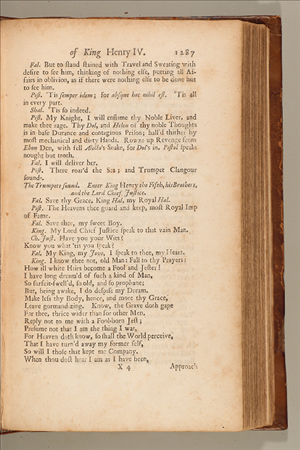 of King Henry IV. 1287
Fal. But to stand stained with Travel and Sweating with
desire to see him, thinking of nothing else, putting all Af-
fairs in oblivion, as if there were nothing else to be done but
to see him.
Pist. 'Tis semper idem; for absque hoc nihil est. 'Tis all
in every part.
Shal. 'Tis so indeed.
Pist. My Knight, I will enflame thy Noble Liver, and
make thee rage. Thy Dol, and Helen of thy noble Thoughts
is in base Durance and contagious Prison; hall'd thither by
most mechanical and dirty Hands. Rowze up Revenge from
Ebon Den, with fell Alecto's Snake, for Dol's in. Pistol speaks
nought but truth.
Fal. I will deliver her.
Pist. There roar'd the Sea; and Trumpet Clangour
sounds.
The Trumpets sound. Enter King Henry the Fifth, his Brothers,
and the Lord Chief Justice.
Fal. Save thy Grace, King Hal, my Royal Hal.
Pist. The Heavens thee guard and keep, most Royal Imp
of Fame.
Fal. Save thee, my sweet Boy.
King. My Lord Chief Justice speak to that vain Man.
Ch. Just. Have you your Wits?
Know you what 'tis you speak?
Fal. My King, my Jove, I speak to thee, my Heart.
King. I know thee not, old Man: Fall to thy Prayers:
How ill white Hairs become a Fool and Jester!
I have long dream'd of such a kind of Man,
So surfeit-swell'd, so old, and so prophane;
But, being awake, I do despise my Dream.
Make less thy Body, hence, and more thy Grace,
Leave gormandizing. Know, the Grave doth gape
For thee, thrice wider than for other Men.
Reply not to me with a Fool-born Jest;
Presume not that I am the thing I was,
For Heaven doth know, so shall the World perceive,
That I have turn'd away my former self,
So will I those that kept me Company.
When thou dost hear I am as I have been,
X 4 Approach